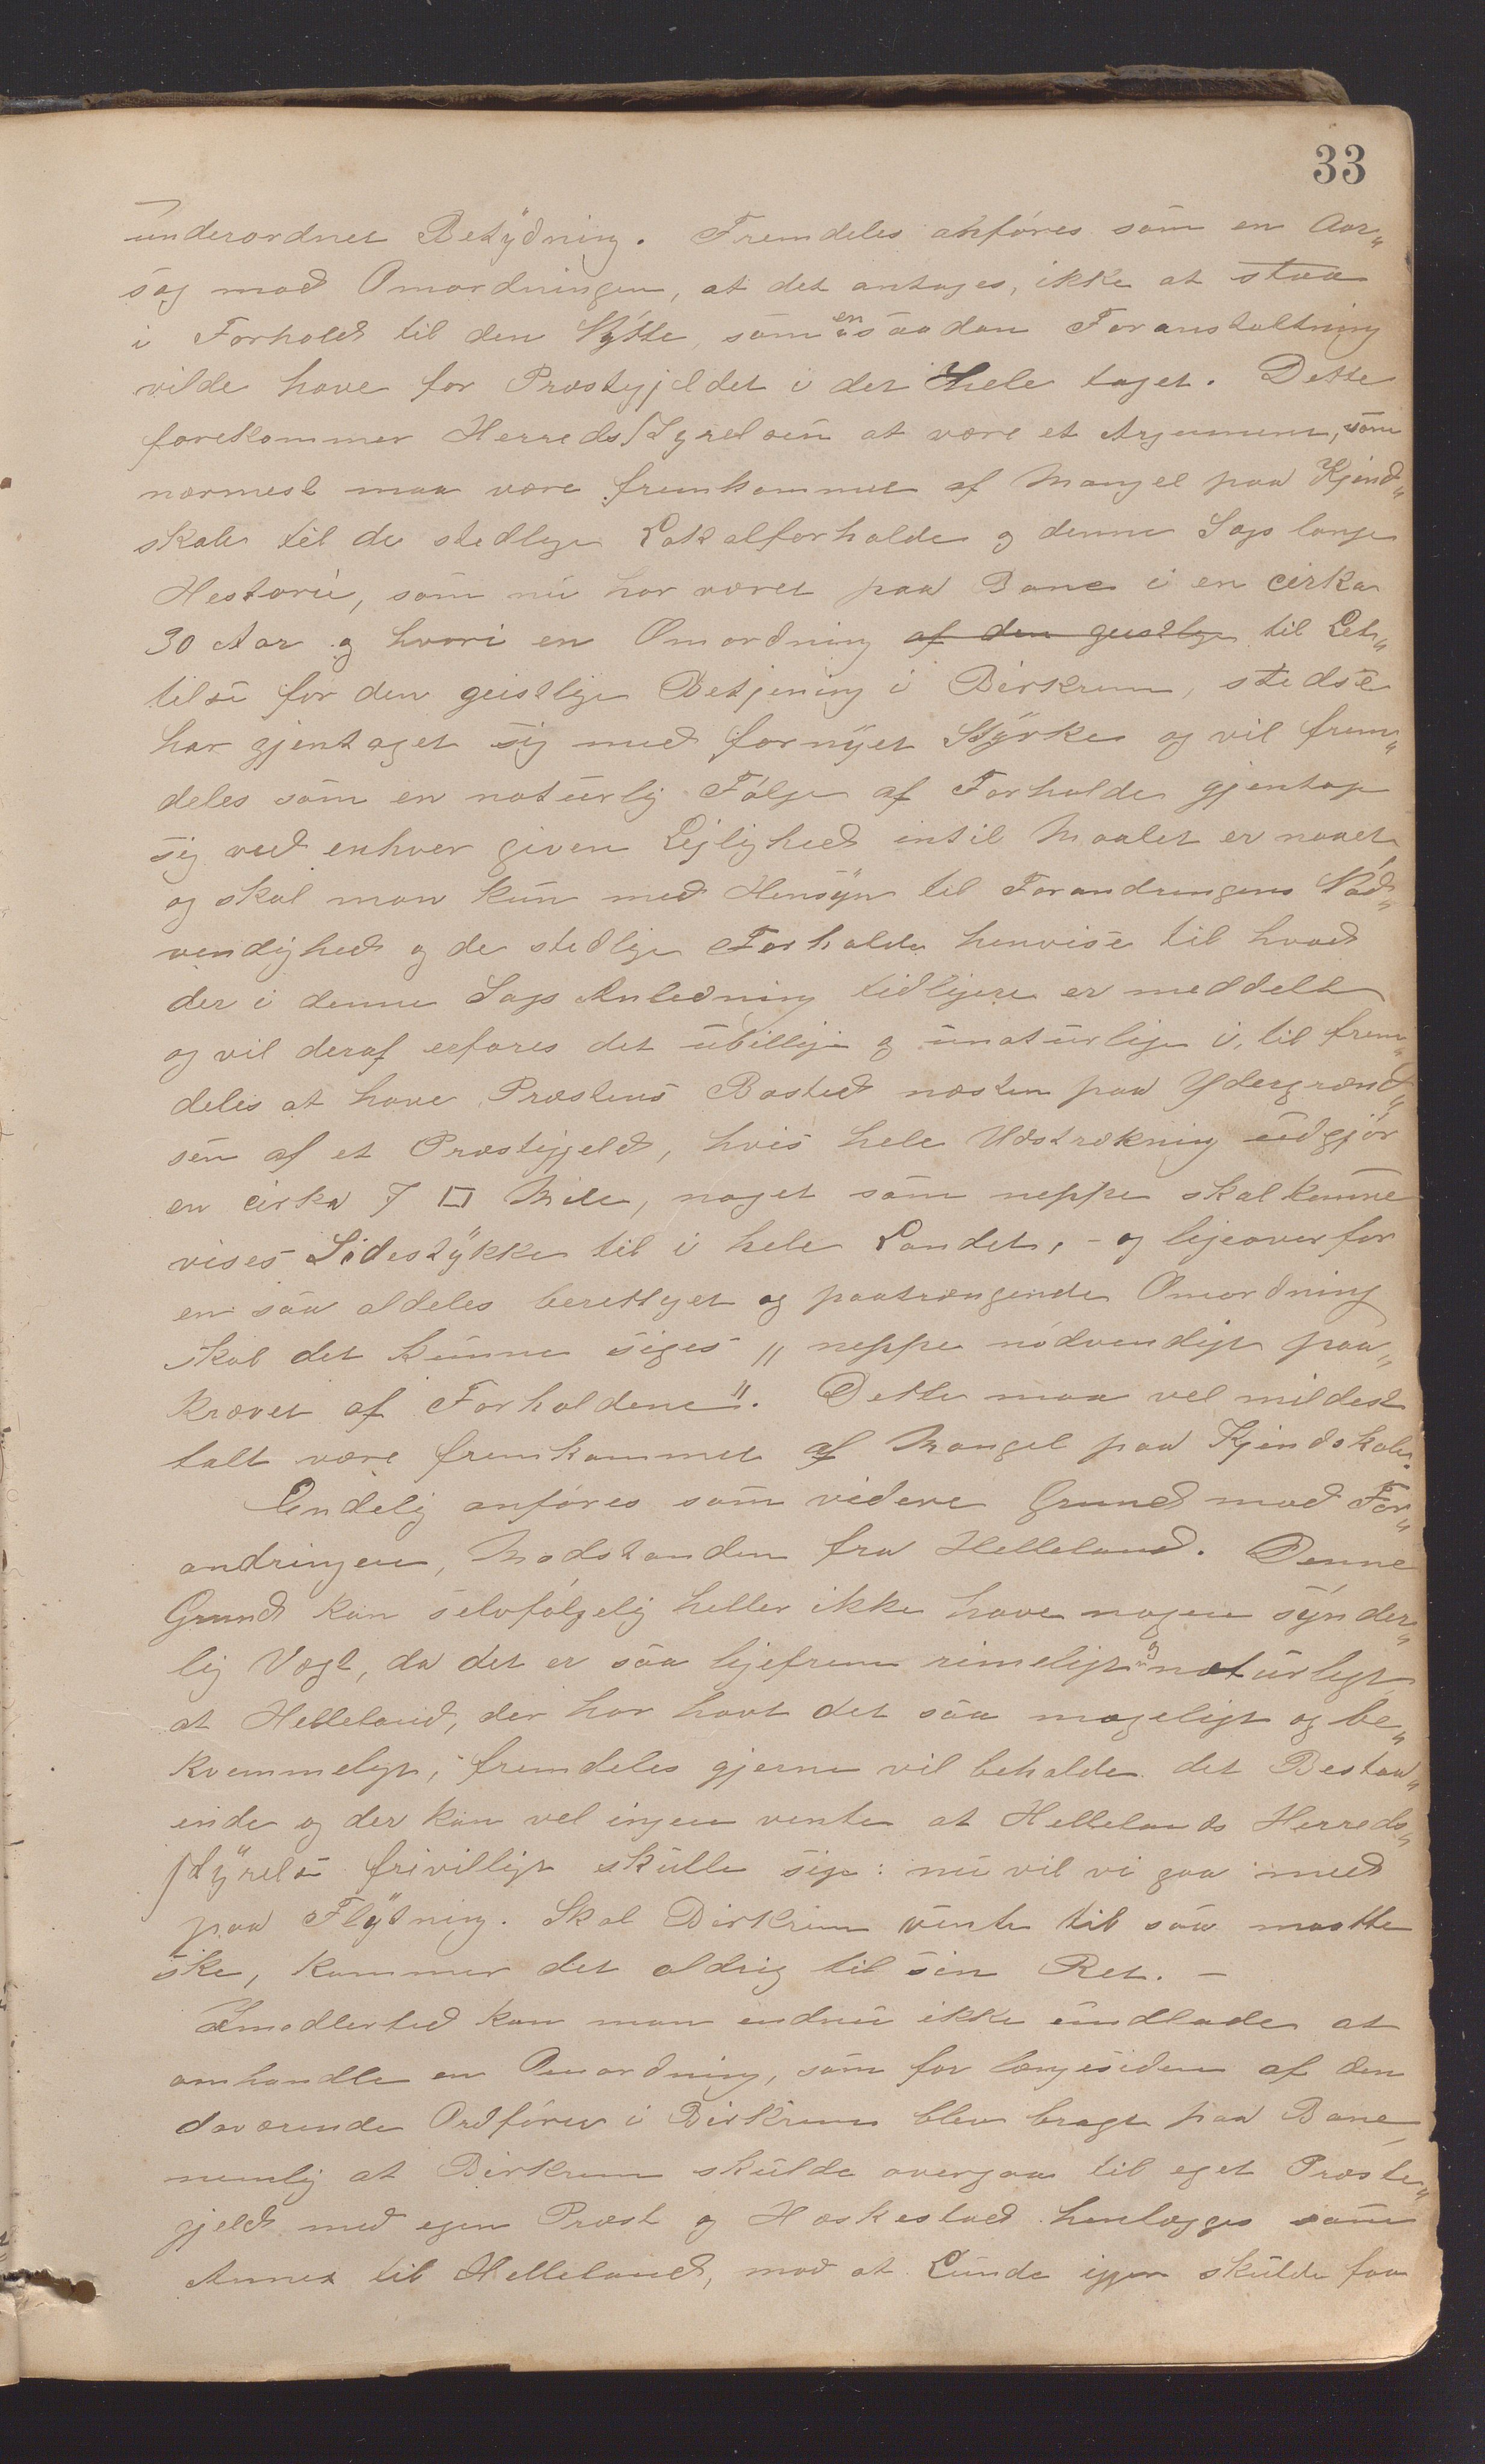 33
underordnet Betydning. Fremdeles anføres som en Aar„
sag mod Omordningen, at det antages, ikke at staa
i Forhold til den Nytte, som en saadan Foranstaltning
vilde have for Præstegjeldet i det Hele taget. Dette
forekommer Herredsstyrelsen at være et Argument, som
nærmest maa være fremkommet af Mangel paa Kjend„
skab til de stedlige Lokalforholde og denne Sags lange
Historie, som nu har været paa Bane i en cirka
30 Aar og hvori en Omordning af den geistlige til Let„
telse for den geistlige Betjening i Birkrem, stedse
har gjentaget sig med fornyet Styrke og vil frem„
deles som en naturlig Følge af Forholde gjentage
sig ved enhver given Lejlighed intil Maalet er naaet
og skal man kun med Hensyn til Forandringens Nød„
vendighed og de stedlige Forholde henvise til hvad
der i denne Sags Anledning tidligere er meddelt
og vil deraf erfares det ubillige og unaturlige i, til frem„
deles at have Præstens Bosted næsten paa Ydergrænd„
sen af et Præstegjeld, hvis hele Udstrækning udgjør
en cirka 7 □ Mile, noget som neppe skal kunne
vises Sidestykke til i hele Landet, - og ligeoverfor
en saa aldeles berettiget og paatrængende Omordning
skal det kunne siges „neppe nødvendigt paa„
krævet af Forholdene". Dette maa vel mildest
talt være fremkommet af Mangel paa Kjendskab.
Endelig anføres som videre Grund mod For„
andringen, Modstanden fra Helleland. Denne
Grund kan selvfølgelig heller ikke have nogen synder„
lig Vægt, da det er saa ligefrem rimeligt og naturligt
at Helleland, der har havt det saa mageligt og be„
kvemmeligt, fremdeles gjerne vil beholde det Bestaa„
ende og der kan vel ingen vente at Hellelands Herreds„
styrelse frivilligt skulle sige: nu vil vi gaa med
paa Flytning. Skal Birkrem vente til saa maatte
ske, kommer det aldrig til sin Ret. -
Imidlertid kan man endnu ikke undlade at
omhandle en Omordning, som for længesiden af den
daværende Ordfører i Birkrem blev bragt paa Bane
nemlig at Birkrem skulde overgaa til eget Præste„
gjeld med egen Præst og Heskestad henlægges som
Annex til Helleland, mod at Lunde igjen skulde faa